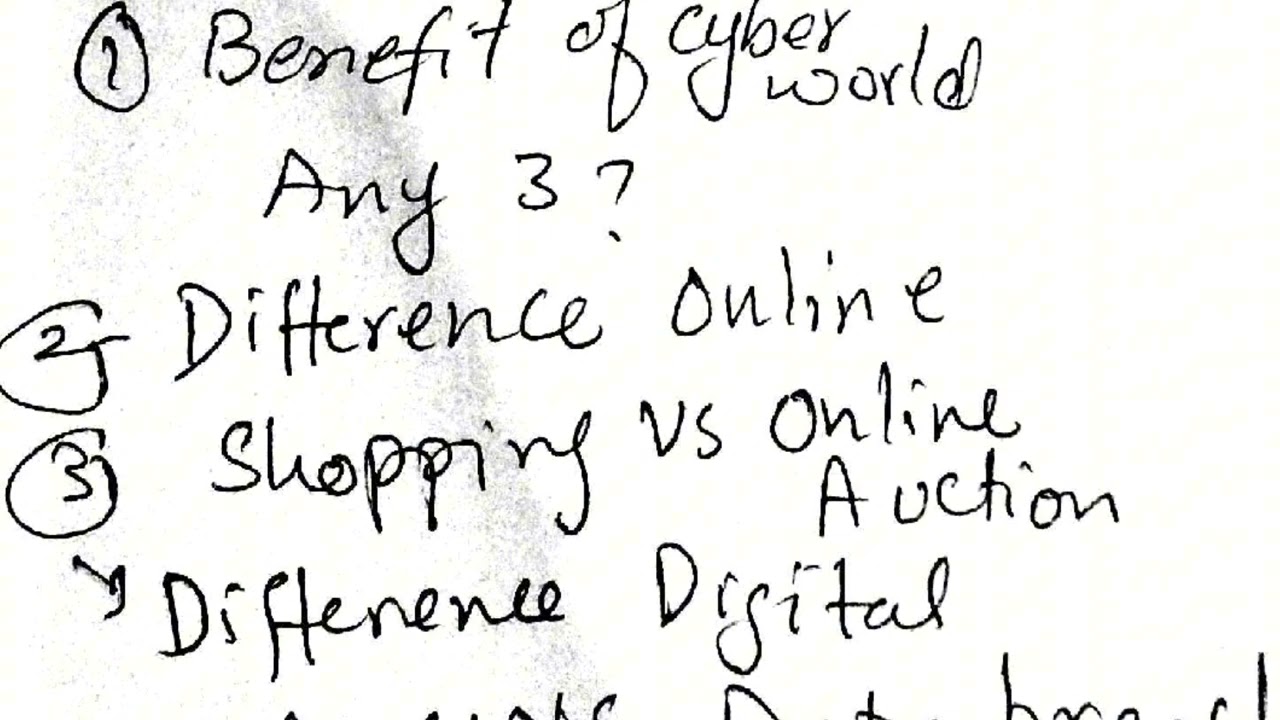 ① Benefit of cyber world
Any 3?
② Difference Online
③ Shopping vs Online Auction
Difference Digital